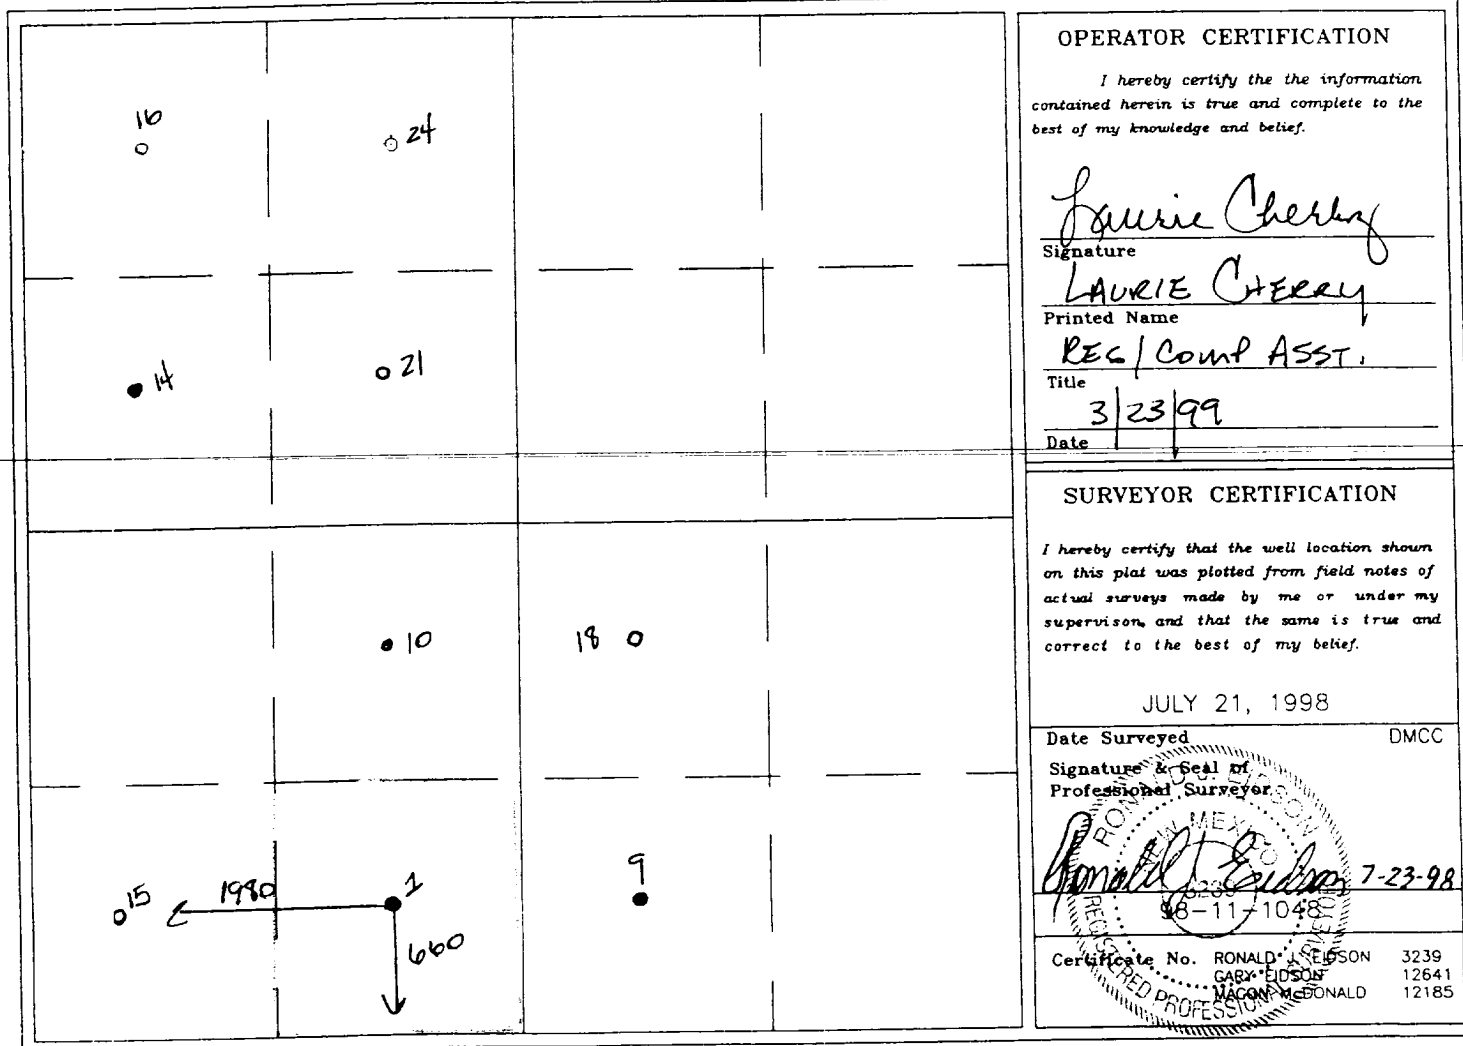 16
24
14
21
10
18
15
1980
1
660
9
OPERATOR CERTIFICATION
I hereby certify the the information
contained herein is true and complete to the
best of my knowledge and belief.
Laurie Cherry
Signature
LAURIE CHERRY
Printed Name
REG/COMP ASST.
Title
3/23/99
Date
SURVEYOR CERTIFICATION
I hereby certify that the well location shown
on this plat was plotted from field notes of
actual surveys made by me or under my
supervison, and that the same is true and
correct to the best of my belief.
JULY 21, 1998
Date Surveyed DMCC
Signature & Seal of
Professional Surveyor
RONALD J. EIDSON
NEW MEXICO
3239
REGISTERED PROFESSIONAL SURVEYOR
Ronald J Eidson 7-23-98
98-11-1048
Certificate No. RONALD J. EIDSON 3239
GARY EIDSON 12641
MACON McDONALD 12185